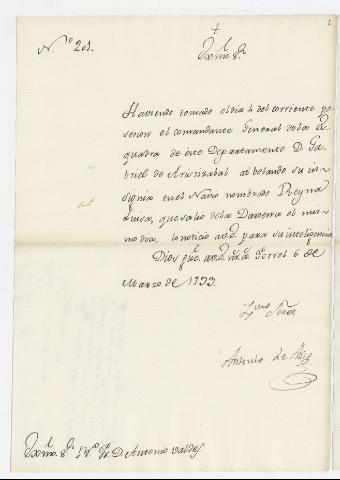 N.º 201.
Exmo. Sr.
Haviendo tomado el dia 4 del corriente po-
sesion el comandante General de la Es-
quadra de este Departamento D. Ga-
briel de Aristizabal arbolando su in-
signia en el Navio nombrado Reyna
Luisa, que salio de la Darsena el mis-
mo dia, lo noticio a V.E. para su inteligencia
Dios gue. a V.E. m.s a.s Ferrol 6 de
Marzo de 1793.
Exmo. Señor
Antonio de
Exmo. Sr. D. Antonio Valdes